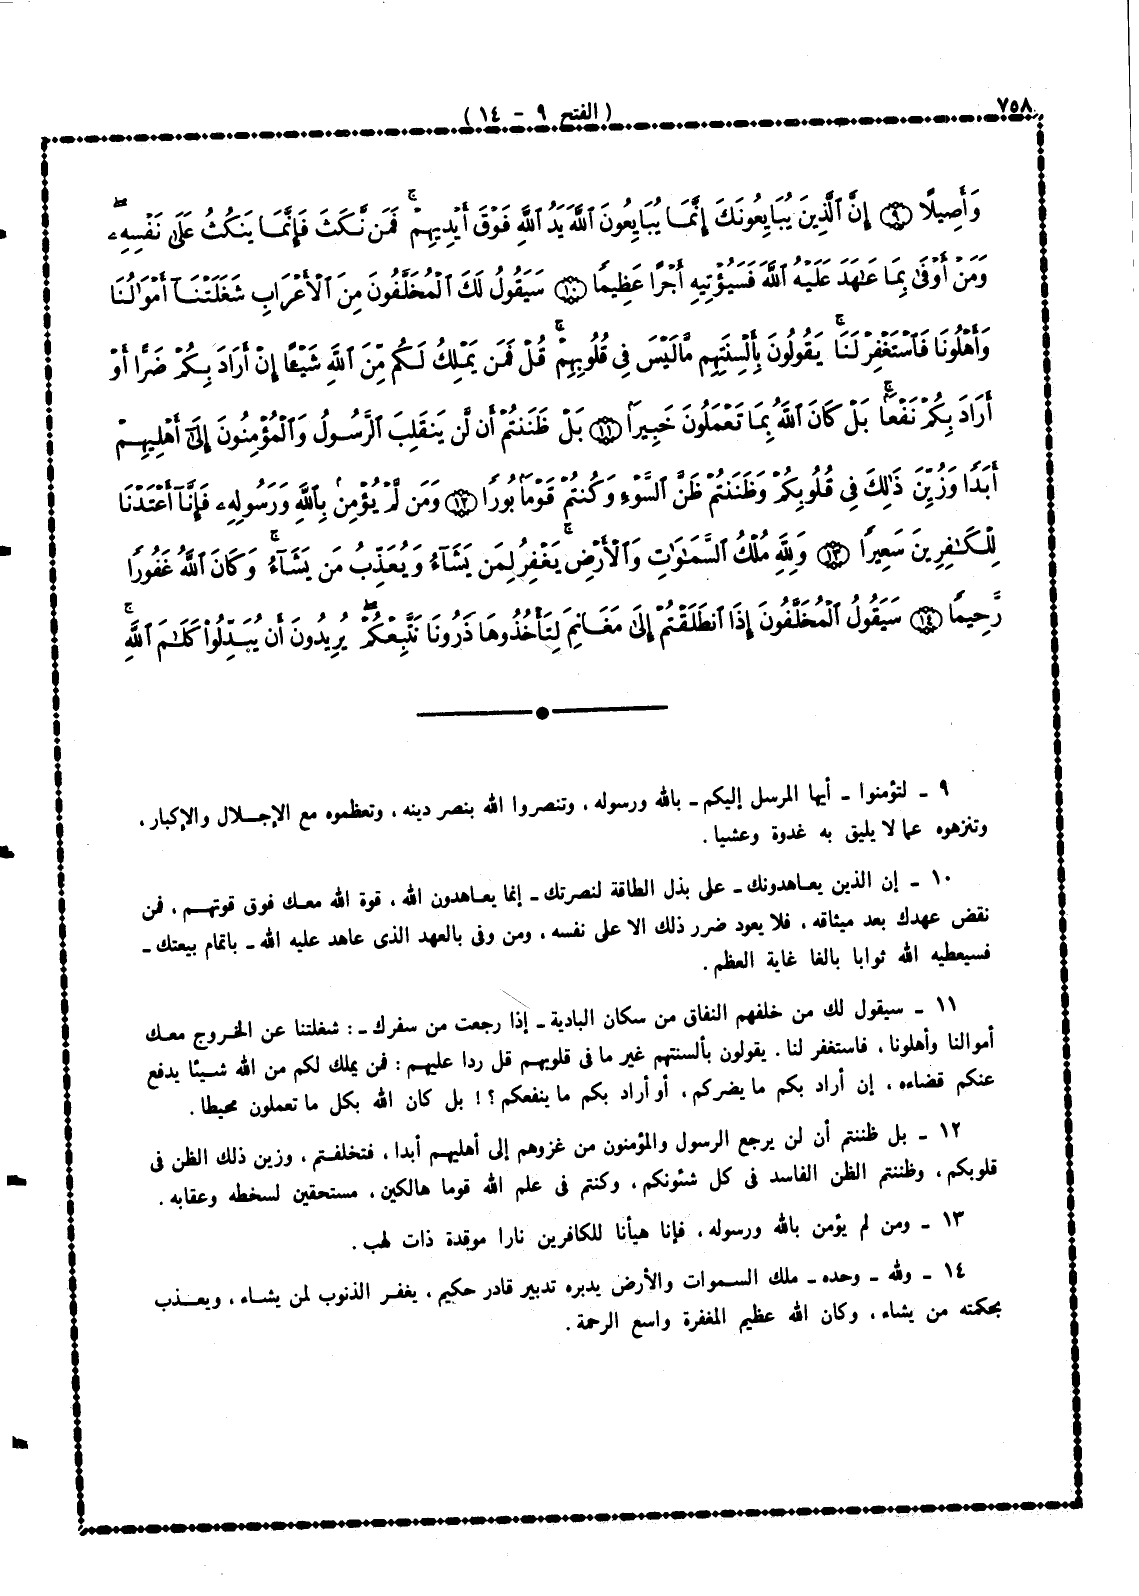 ٧٥٨
( الفتح ٩ – ١٤ )
وَأَصِيلًا ۝٩ إِنَّ ٱلَّذِينَ يُبَايِعُونَكَ إِنَّمَا يُبَايِعُونَ ٱللَّهَ يَدُ ٱللَّهِ فَوْقَ أَيْدِيهِمْ ۚ فَمَن نَّكَثَ فَإِنَّمَا يَنكُثُ عَلَىٰ نَفْسِهِۦ ۖ
وَمَنْ أَوْفَىٰ بِمَا عَـٰهَدَ عَلَيْهُ ٱللَّهَ فَسَيُؤْتِيهِ أَجْرًا عَظِيمًا ۝١٠ سَيَقُولُ لَكَ ٱلْمُخَلَّفُونَ مِنَ ٱلْأَعْرَابِ شَغَلَتْنَآ أَمْوَٰلُنَا
وَأَهْلُونَا فَٱسْتَغْفِرْ لَنَا ۚ يَقُولُونَ بِأَلْسِنَتِهِم مَّا لَيْسَ فِى قُلُوبِهِمْ ۚ قُلْ فَمَن يَمْلِكُ لَكُم مِّنَ ٱللَّهِ شَيْـًٔا إِنْ أَرَادَ بِكُمْ ضَرًّا أَوْ
أَرَادَ بِكُمْ نَفْعًۢا ۚ بَلْ كَانَ ٱللَّهُ بِمَا تَعْمَلُونَ خَبِيرًۢا ۝١١ بَلْ ظَنَنتُمْ أَن لَّن يَنقَلِبَ ٱلرَّسُولُ وَٱلْمُؤْمِنُونَ إِلَىٰٓ أَهْلِيهِمْ
أَبَدًا وَزُيِّنَ ذَٰلِكَ فِى قُلُوبِكُمْ وَظَنَنتُمْ ظَنَّ ٱلسَّوْءِ وَكُنتُمْ قَوْمًۢا بُورًا ۝١٢ وَمَن لَّمْ يُؤْمِنۢ بِٱللَّهِ وَرَسُولِهِۦ فَإِنَّآ أَعْتَدْنَا
لِلْكَـٰفِرِينَ سَعِيرًا ۝١٣ وَلِلَّهِ مُلْكُ ٱلسَّمَـٰوَٰتِ وَٱلْأَرْضِ ۚ يَغْفِرُ لِمَن يَشَآءُ وَيُعَذِّبُ مَن يَشَآءُ ۚ وَكَانَ ٱللَّهُ غَفُورًا
رَّحِيمًا ۝١٤ سَيَقُولُ ٱلْمُخَلَّفُونَ إِذَا ٱنطَلَقْتُمْ إِلَىٰ مَغَانِمَ لِتَأْخُذُوهَا ذَرُونَا نَتَّبِعْكُمْ ۖ يُرِيدُونَ أَن يُبَدِّلُوا۟ كَلَـٰمَ ٱللَّهِ ۚ
٩ ـ لتؤمنوا ـ أيها المرسل إليكم ـ بالله ورسوله ، وتنصروا الله بنصر دينه ، وتعظموه مع الإجلال والإكبار ،
وتنزهوه عما لا يليق به غدوة وعشيا .
١٠ ـ إن الذين يعاهدونك ـ على بذل الطاقة لنصرتك ـ إنما يعاهدون الله ، قوة الله معك فوق قوتهم ، فمن
نقض عهدك بعد ميثاقه ، فلا يعود ضرر ذلك الا على نفسه ، ومن وفى بالعهد الذى عاهد عليه الله ـ باتمام بيعتك ـ
فسيعطيه الله ثوابا بالغا غاية العظم .
١١ ـ سيقول لك من خلفهم النفاق من سكان البادية ـ إذا رجعت من سفرك ـ : شغلتنا عن الخروج معك
أموالنا وأهلونا ، فاستغفر لنا . يقولون بألسنتهم غير ما فى قلوبهم قل ردا عليهم : فمن يملك لكم من الله شيئا يدفع
عنكم قضاءه ، إن أراد بكم ما يضركم ، أو أراد بكم ما ينفعكم ؟ ! بل كان الله بكل ما تعملون محيطا .
١٢ ـ بل ظننتم أن لن يرجع الرسول والمؤمنون من غزوهم إلى أهليهم أبدا ، فتخلفتم ، وزين ذلك الظن فى
قلوبكم ، وظننتم الظن الفاسد فى كل شئونكم ، وكنتم فى علم الله قوما هالكين ، مستحقين لسخطه وعقابه .
١٣ ـ ومن لم يؤمن بالله ورسوله ، فإنا هيأنا للكافرين نارا موقدة ذات لهب .
١٤ ـ ولله ـ وحده ـ ملك السموات والأرض يدبره تدبير قادر حكيم ، يغفر الذنوب لمن يشاء ، ويعذب
بحكمته من يشاء ، وكان الله عظيم المغفرة واسع الرحمة .